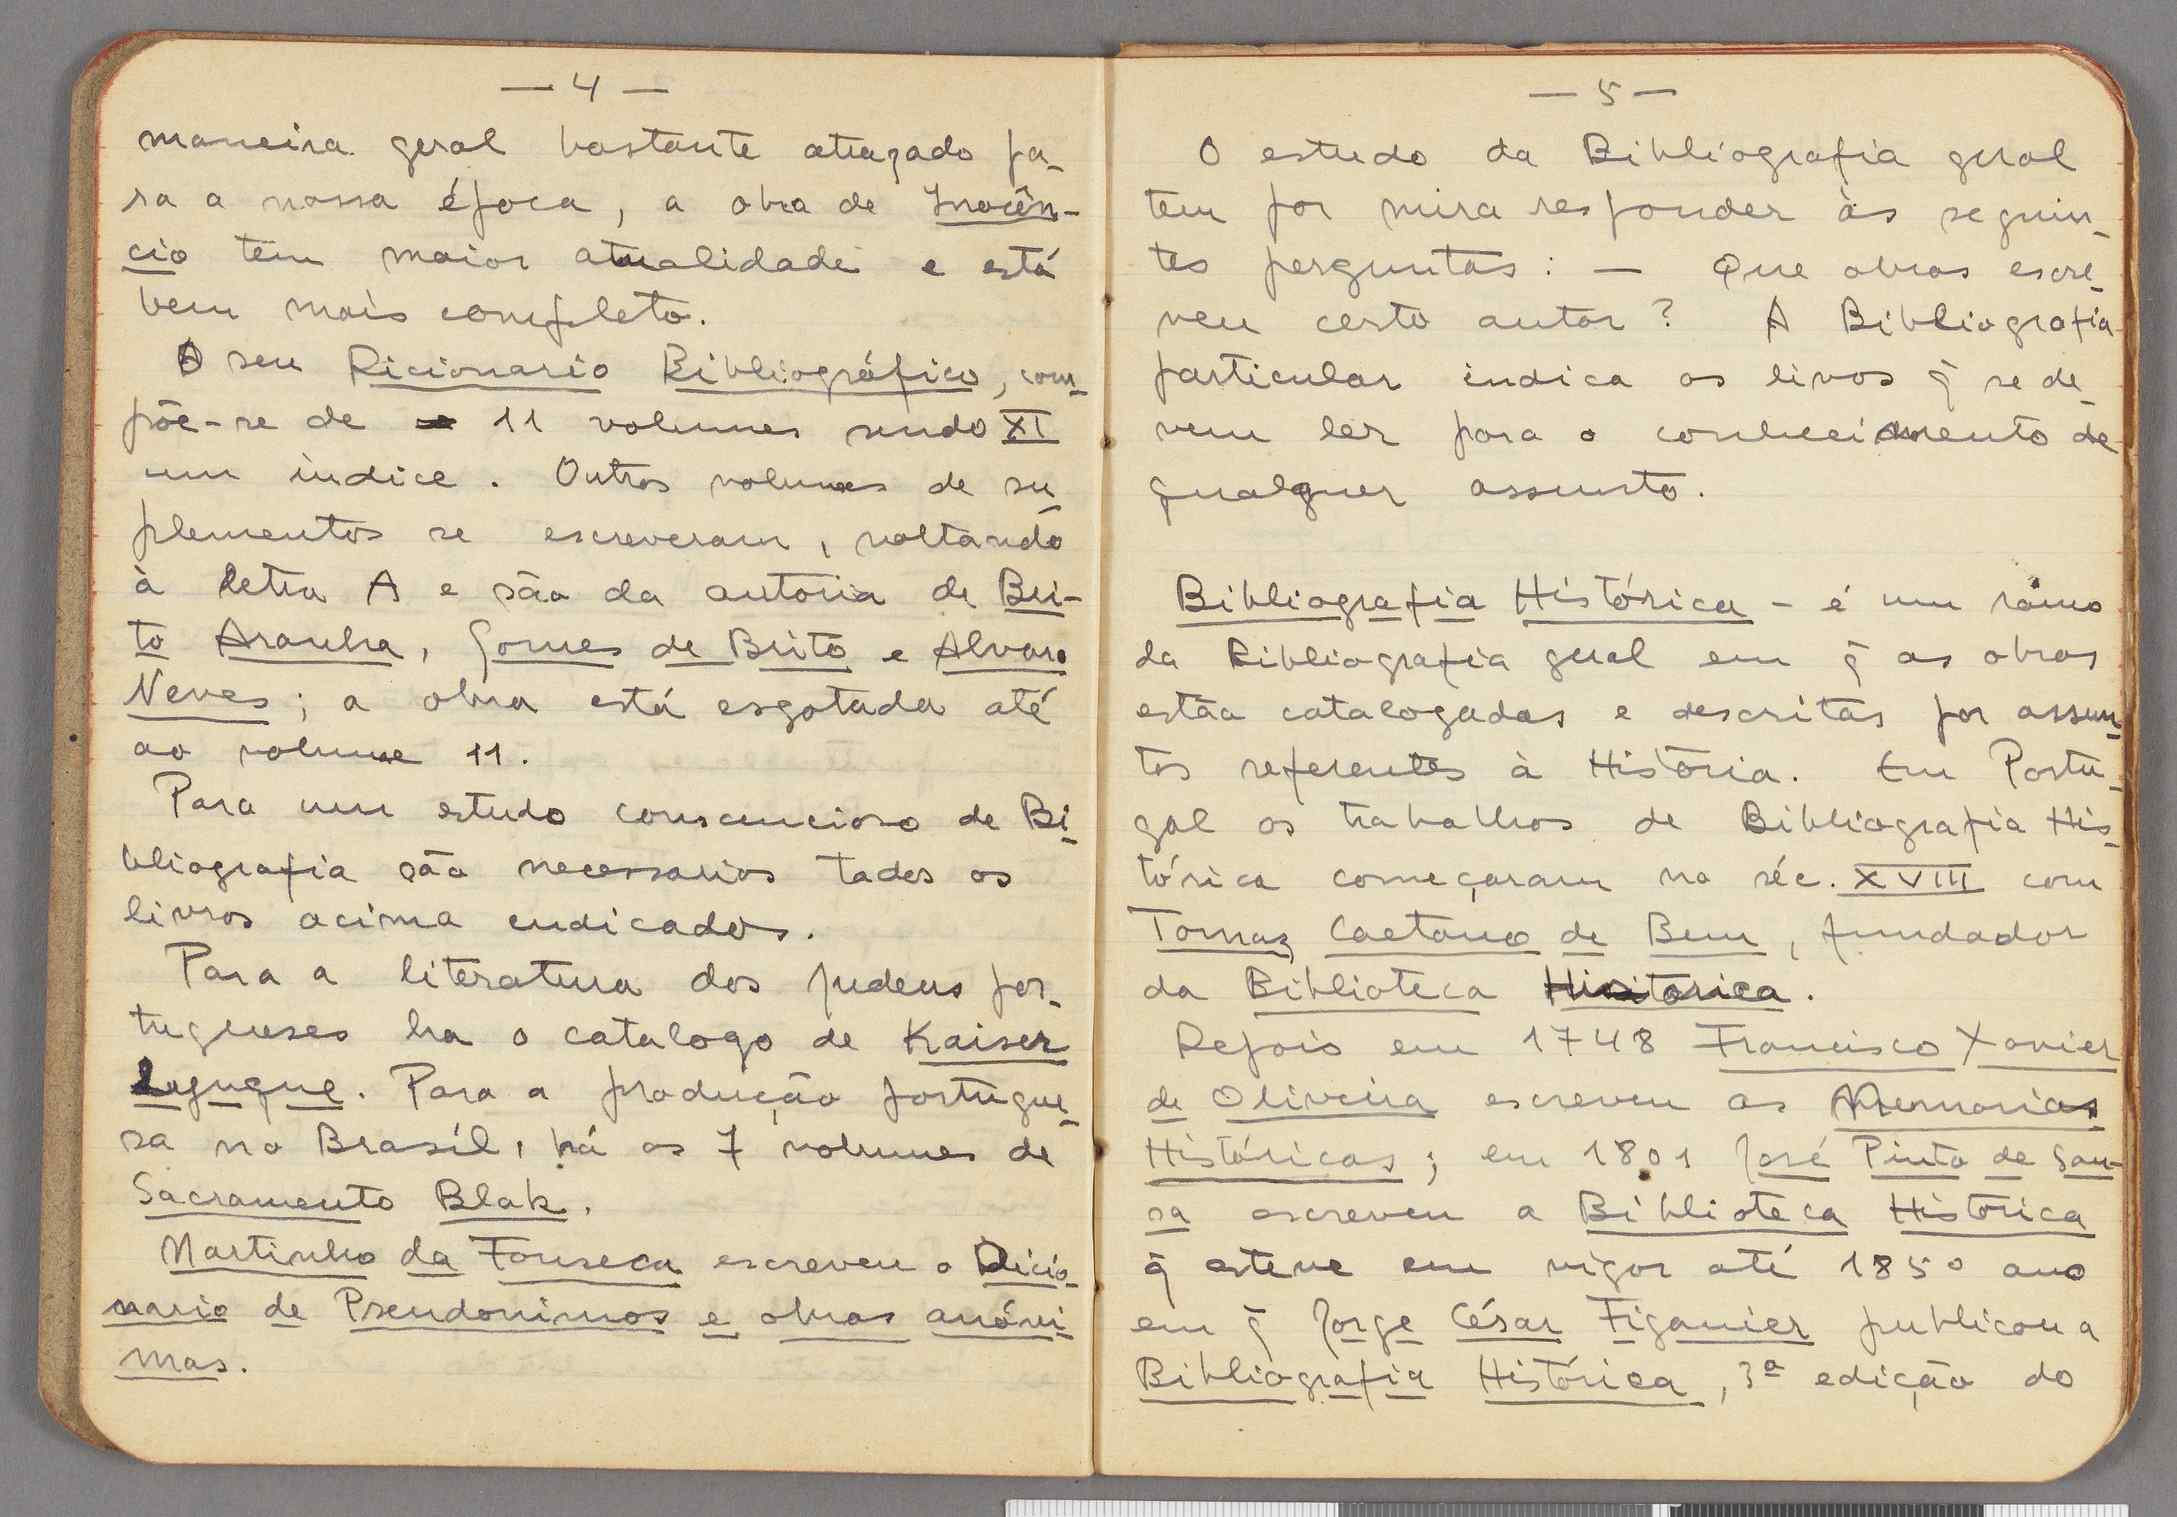 — 4 —
maneira geral bastante atrazado pa-
ra a nossa época, a obra de Inocên-
cio tem maior atualidade e está
bem mais completo.
O seu Dicionario Bibliográfico, com-
põe-se de 11 volumes sendo XI
um indice. Outros volumes de su-
plementos se escreveram, voltando
à letra A e são da autoria de Bri-
to Aranha, Gomes de Brito e Alvaro
Neves; a obra está esgotada até
ao volume 11.
Para um estudo consciencioso de Bi-
bliografia são necessarios todos os
livros acima indicados.
Para a literatura dos judeus por-
tugueses ha o catalogo de Kaiser
. Para a produção portugue-
sa no Brasíl, há os 7 volumes de
Sacramento Blak.
Martinho da Fonseca escreveu o Dicio-
nario de Pseudonimos e obras anóni-
mas.
— 5 —
O estudo da Bibliografia geral
tem por mira responder às seguin-
tes perguntas: — Que obras escre-
veu certo autor? A Bibliografia
particular indica os livros q̃ se de-
vem ler para o conhecimento de
qualquer assunto.
Bibliografia Histórica - é um ramo
da Bibliografia geral em q̃ as obras
estão catalogadas e descritas por assun-
tos referentes à História. Em Portu-
gal os trabalhos de Bibliografia His-
tórica começaram no séc. XVIII com
Tomaz Caetano de Bem, fundador
da Biblioteca Historica.
Depois em 1748 Francisco Xavier
de Oliveira escreveu as Memorias
Históricas; em 1801 José Pinto de Sou-
sa escreveu a Biblioteca Historica
q̃ esteve em vigor até 1850 ano
em q̃ Jorge César Figanier publicou a
Bibliografia Histórica, 3ª edição do